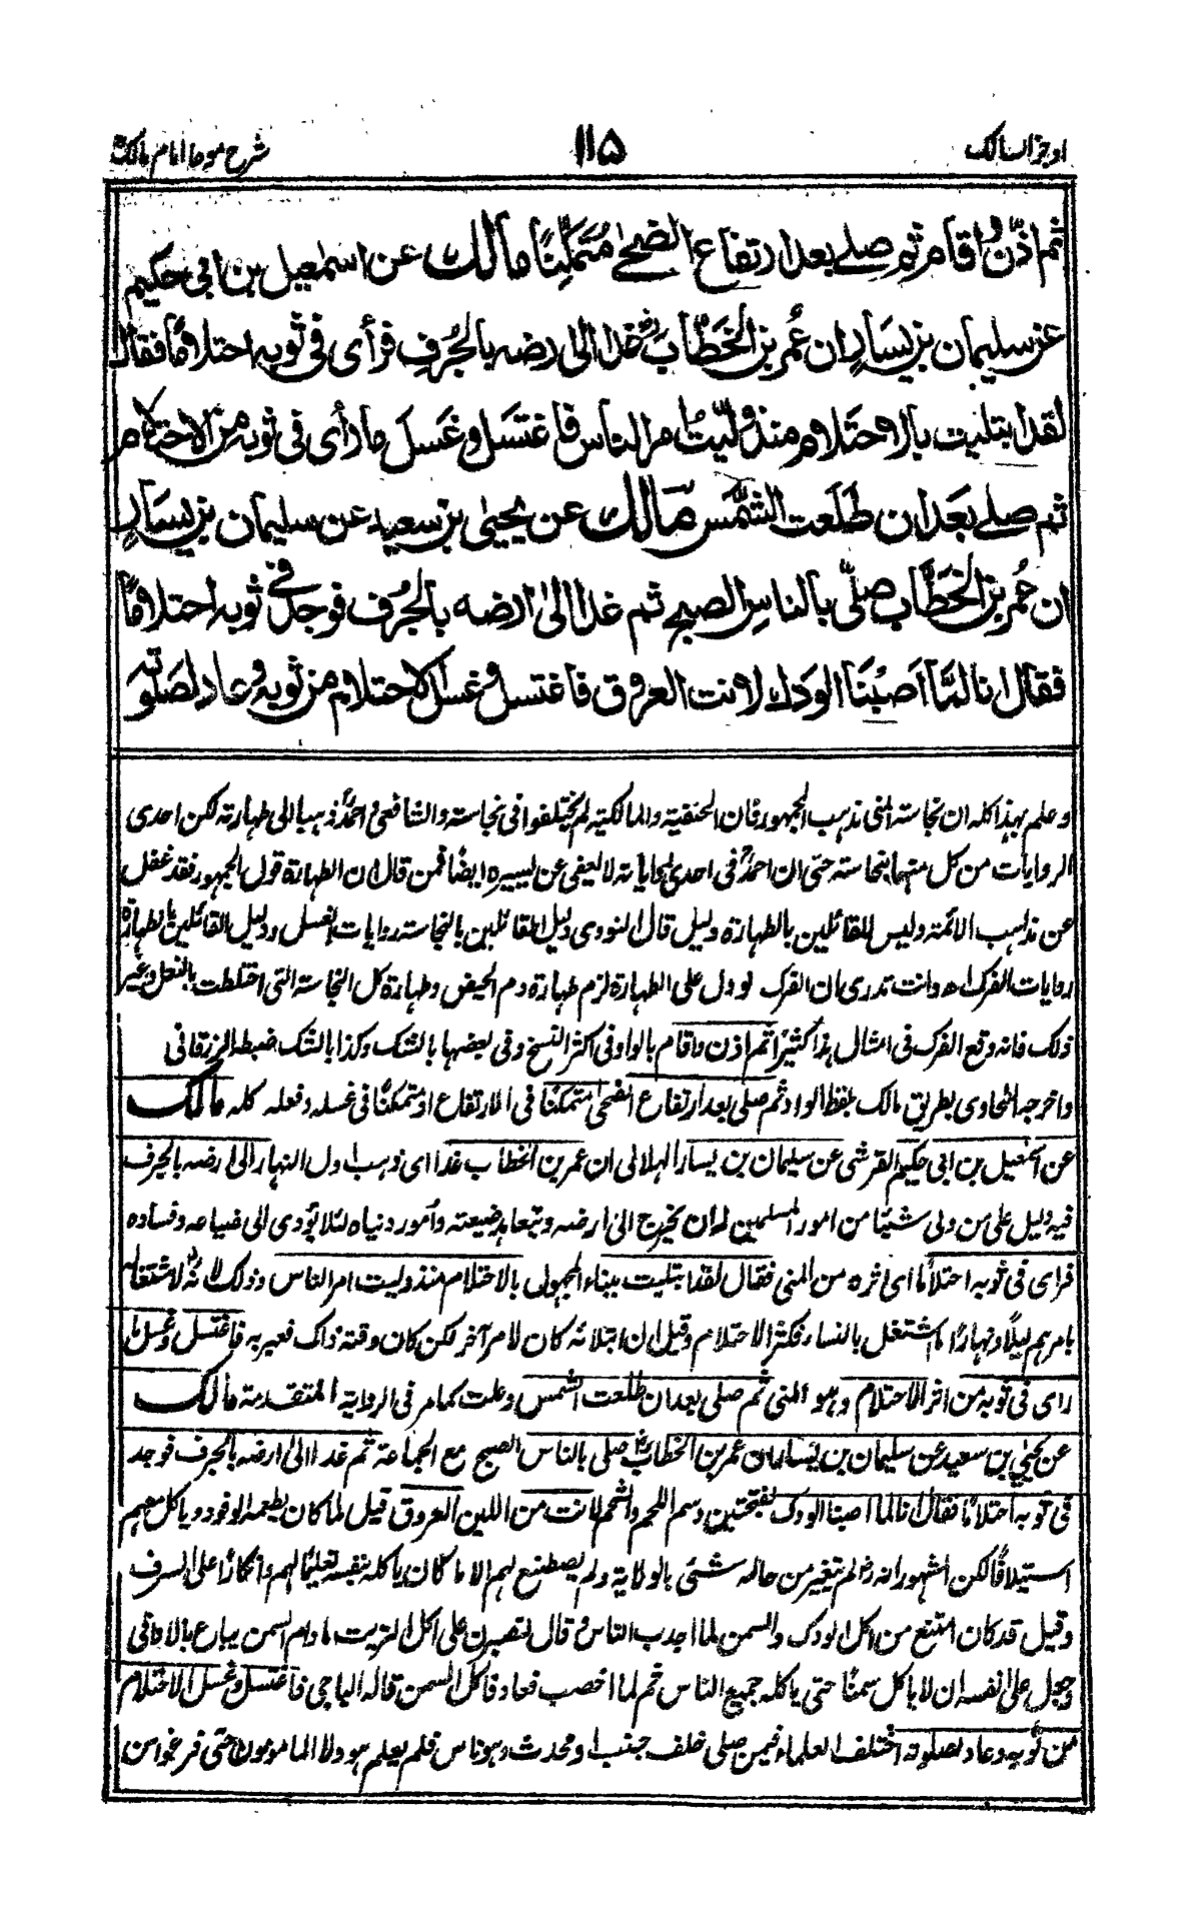 اوجز المسالك
١١٥
شرح موطا امام مالك
ثم اذّن واقام ثم صلى بعد ارتفاع الضحى مُتمكِّنًا مالك عن اسمعيل بن ابى حكيم
عن سليمان بن يسارٍ ان عُمر بن الخطّاب غدا الى ارضه بالجُرفِ فرأى فى ثوبه احتلامًا فقال
لقد ابتليت بالاحتلام منذ وُلّيتُ امر الناس فاغتسَل وغَسل ما رأى فى ثوبه من الاحتلام
ثم صلى بعد ان طلَعت الشّمس مالك عن يحيى بن سعيد عن سليمان بن يسارٍ
ان عُمر بن الخطّاب صلّى بالناس الصبح ثم غدا الى ارضه بالجُرف فوجد فى ثوبه احتلامًا
فقال انا لمّا اَصبْنَا الودك لانت العروق فاغتسل وغسل الاحتلام من ثوبه وعاد لصلوته
وعلم بهذا كله ان نجاسة المنى مذهب الجمهور فان الحنفية والمالكية لم يختلفوا فى نجاسته والشافعى واحمد ذهبا الى طهارته لكن احدى
الروايات من كل منهما بنجاسته حتى ان احمد فى احدى رواياته لا يعفى عن يسيره ايضًا فمن قال ان الطهارة قول الجمهور فقد غفل
عن مذاهب الائمة وليس للقائلين بالطهارة دليل قال النووى دليل القائلين بالنجاسة روايات الغسل ودليل القائلين بالطهارة
روايات الفرك اهـ وانت تدرى بان الفرك لو دل على الطهارة لزم طهارة دم الحيض وطهارة كل النجاسة التى اختلطت بالنعل وغير
ذلك فانه وقع الفرك فى امثال هذا كثيرًا ثم اذن واقام بالواو فى اكثر النسخ وفى بعضها بالشك وكذا بالشك ضبط الزرقانى
واخرجه الطحاوى بطريق مالك بلفظ الواو ثم صلى بعد ارتفاع الضحى متمكنًا فى الارتفاع او متمكنًا فى غسله وفعله كله مالك
عن اسمعيل بن ابى حكيم القرشى عن سليمان بن يسار الهلالى ان عمر بن الخطاب غدا اى ذهب اول النهار الى ارضه بالجرف
فيه دليل على من ولى شيئًا من امور المسلمين له ان يخرج الى ارضه ويتعاهد ضيعته وأمور دنياه لئلا يؤدى الى ضياعه وفساده
فراى فى ثوبه احتلامًا اى اثره من المنى فقال لقد ابتليت ببناء المجهول بالاحتلام منذ وليت امر الناس وذلك لانه لاشتغاله
بامرهم ليلًا ونهارًا لم يشتغل بالنساء فكثر الاحتلام وقيل ان ابتلائه كان لامر آخر لكن كان وقته ذاك فعبر به فاغتسل وغسل ما
راى فى ثوبه من اثر الاحتلام وهو المنى ثم صلى بعد ان طلعت الشمس وعلت كما مر فى الرواية المتقدمة مالك
عن يحيى بن سعيد عن سليمان بن يسار ان عمر بن الخطاب صلى بالناس الصبح مع الجماعة ثم غدا الى ارضه بالجرف فوجد
فى ثوبه احتلامًا فقال انا لما اصبنا الودك بفتحتين دسم اللحم والشحم لانت من اللين العروق قيل لما كان يطعمه الوفود وياكل معهم
استيلافًا لكن اشهر انه لم يتغير من حاله شئى بالولاية ولم يصطنع لهم الا ما كان ياكله بنفسه تعليمًا لهم وانكارًا على السرف
وقيل قد كان امتنع من اكل الودك والسمن لما اجدب الناس وقال لتصبرن على اكل الزيت ما دام السمن يباع بالاواقى
وجعل على نفسه ان لا ياكل سمنًا حتى ياكله جميع الناس ثم لما اخصب فعاد فاكل السمن قاله الباجى فاغتسل وغسل الاحتلام
من ثوبه وعاد لصلوته اختلف العلماء فيمن صلى خلف جنب او محدث وهو ناس فلم يعلم هو ولا المامومون حتى فرغوا من